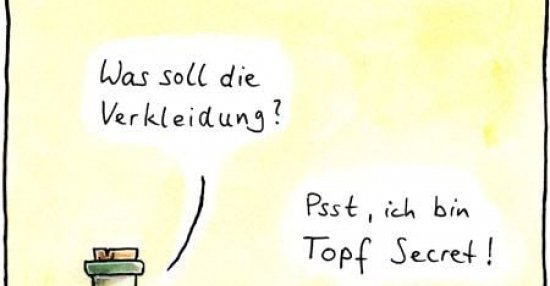 Was soll die
Verkleidung?
Psst, ich bin
Topf Secret!